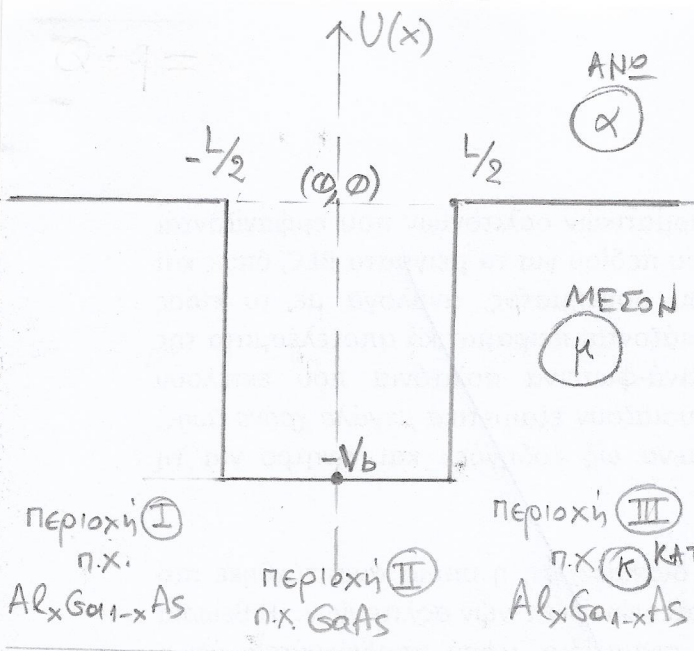 U(x)
ΑΝΩ
α
-L/2
(Φ,Φ)
L/2
ΜΕΣΟΝ
μ
-Vb
περιοχή I
π.χ.
AlxGa1-xAs
περιοχή II
π.χ. GaAs
περιοχή III
π.χ. κ ΚΑΤ
AlxGa1-xAs